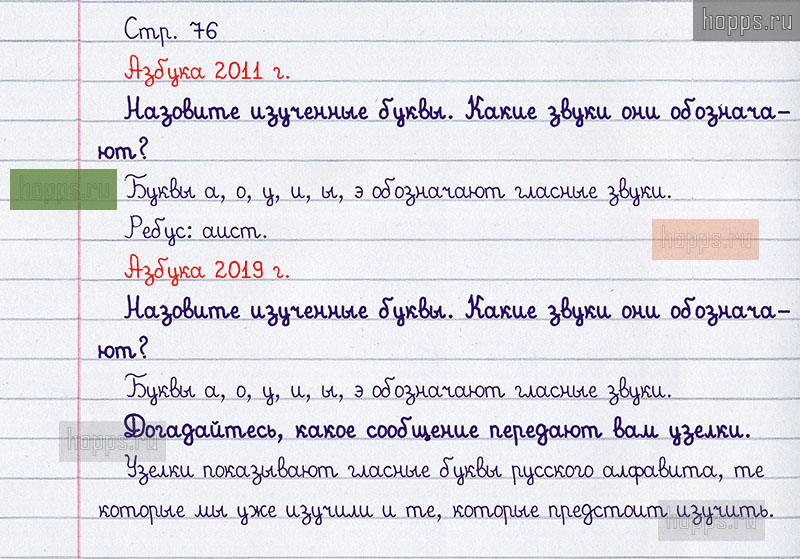 hopps.ru
Стр. 76
Азбука 2011 г.
Назовите изученные буквы. Какие звуки они обознача-
ют?
hopps.ru
Буквы а, о, у, и, ы, э обозначают гласные звуки.
Ребус: аист.
hopps.ru
Азбука 2019 г.
Назовите изученные буквы. Какие звуки они обознача-
ют?
Буквы а, о, у, и, ы, э обозначают гласные звуки.
Догадайтесь, какое сообщение передают вам узелки.
hopps.ru
Узелки показывают гласные буквы русского алфавита, те
которые мы уже изучили и те, которые предстоит изучить.
hopps.ru